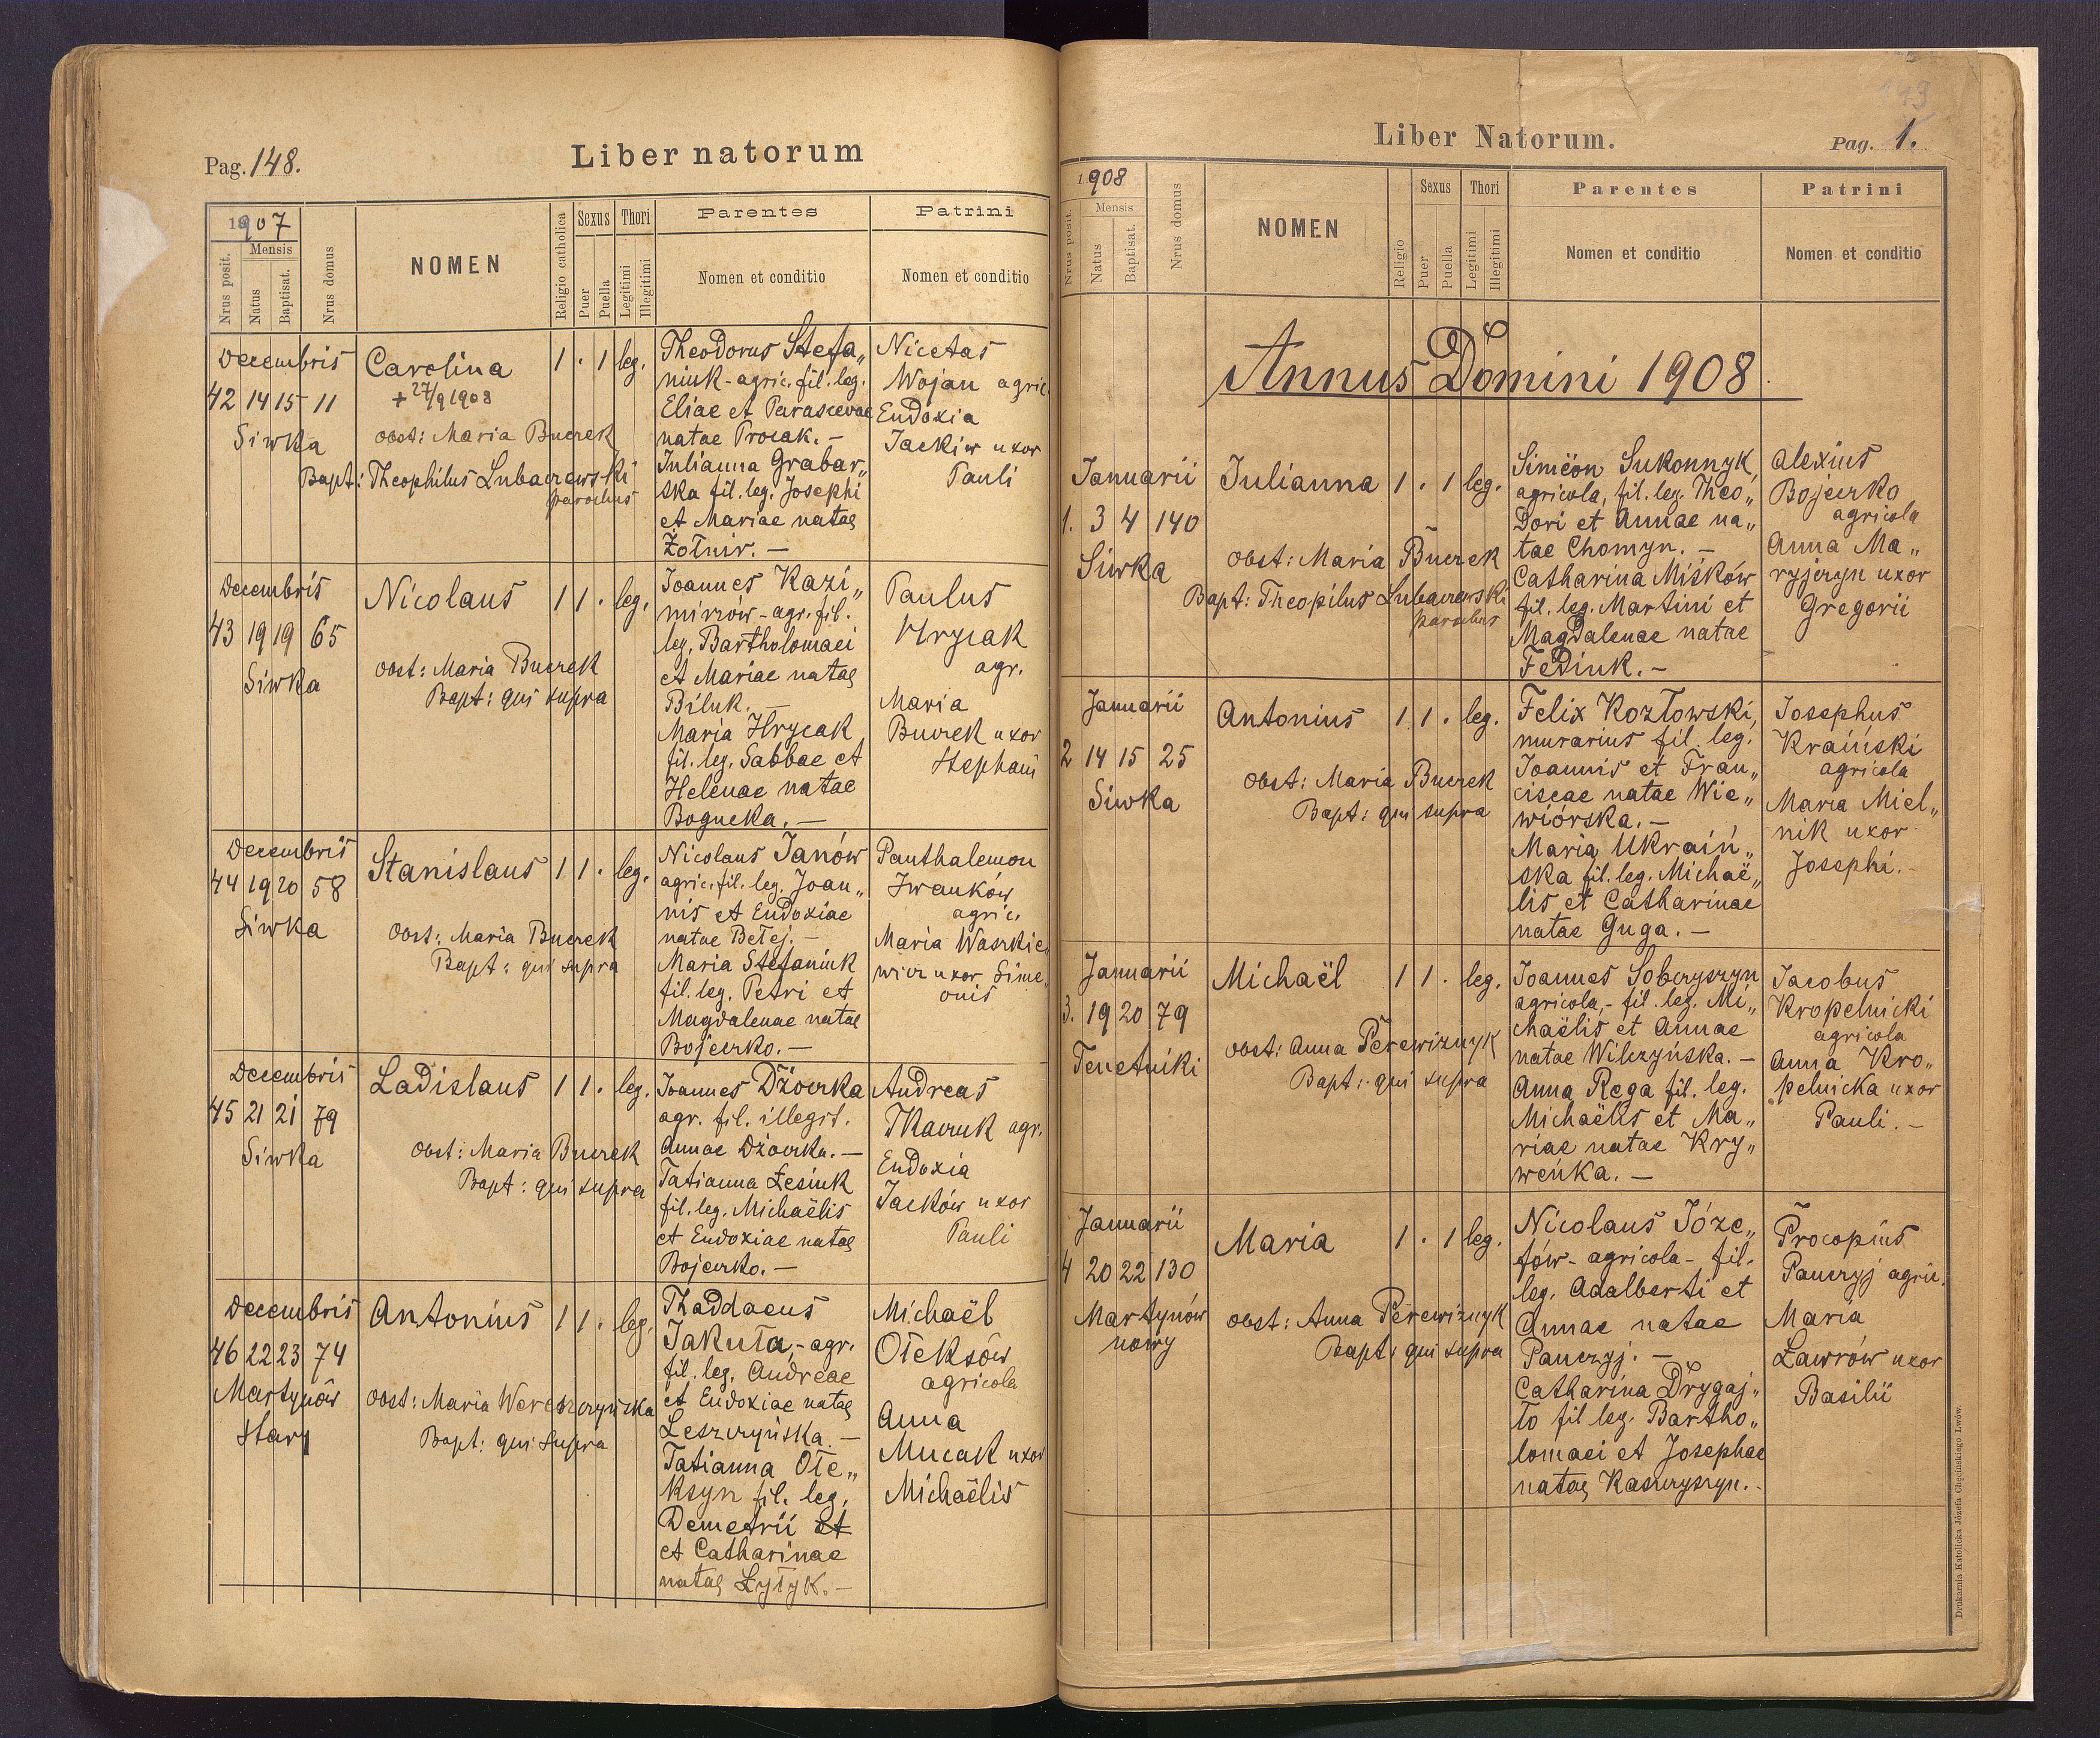 Pag. 148.
Liber natorum
1907
Mensis
Nrus posit.
Natus
Baptisat.
Nrus domus
NOMEN
Religio catholica
Sexus
Puer
Puella
Thori
Legitimi
Illegitimi
Parentes
Nomen et conditio
Patrini
Nomen et conditio
Decembris
42 14 15 11
Siwka
Carolina
+ 27/9 1908
obst: Maria Buczek
Bapt: Theophilus Lubaczewski
parochus
1 . 1 leg.
Theodorus Stefa„
niuk - agric. fil. leg.
Eliae et Parascevae
natae Procak. —
Julianna Grabar„
ska fil. leg. Josephi
et Mariae natae
Żołnir. —
Nicetas
Wojan agric
Eudoxia
Jackiw uxor
Pauli
Decembris
43 19 19 65
Siwka
Nicolaus
obst: Maria Buczek
Bapt: qui supra
1 1 . leg.
Joannes Kazi„
mirzów - agr. fil.
leg. Bartholomaei
et Mariae natae
Biluk. —
Maria Hrycak
fil. leg. Sabbae et
Helenae natae
Bogucka. —
Paulus
Hrycak
agr.
Maria
Buczek uxor
Stephani
Decembris
44 19 20 58
Siwka
Stanislaus
obst: Maria Buczek
Bapt: qui supra
1 1 . leg.
Nicolaus Janów
agric. fil. leg. Joan„
nis et Eudoxiae
natae Betej. —
Maria Stefaniuk
fil. leg. Petri et
Magdalenae natae
Bojeczko. —
Panthalemon
Iwanków
agric.
Maria Waszkie„
wicz uxor Sime„
onis
Decembris
45 21 21 79
Siwka
Ladislaus
obst: Maria Buczek
Bapt: qui supra
1 1 . leg.
Joannes Dżoczka
agr. fil. illegit.
Annae Dżoczka. —
Tatianna Łesiuk
fil. leg. Michaëlis
et Eudoxiae natae
Bojeczko. —
Andreas
Tkaczuk agr.
Eudoxia
Jacków uxor
Pauli
Decembris
46 22 23 74
Martynów
Stary
Antonius
obst: Maria Wereszczyńska
Bapt: qui supra
1 1 . leg.
Thaddaeus
Jakuta, - agr.
fil. leg. Andreae
et Eudoxiae natae
Leszczyńska. —
Tatianna Ołe„
ksyn fil. leg.
Demetrii et
et Catharinae
natae Łytyk. —
Michaël
Ołeksów
agricola
Anna
Mucak uxor
Michaëlis
149
Liber Natorum.
Pag. 1.
1908
Mensis
Nrus posit.
Natus
Baptisat.
Nrus domus
NOMEN
Religio
Sexus
Puer
Puella
Thori
Legitimi
Illegitimi
Parentes
Nomen et conditio
Patrini
Nomen et conditio
Annus Domini 1908
Januarii
1. 3 4 140
Siwka
Julianna
obst: Maria Buczek
Bapt: Theopilus Lubaczewski
parochus
1 . 1 leg.
Simëon Sukonnyk
agricola, fil. leg. Theo„
dori et Annae na„
tae Chomyn. —
Catharina Miśków
fil. leg. Martini et
Magdalenae natae
Fediuk. —
Alexius
Bojeczko
agricola
Anna Ma„
ryjczyn uxor
Gregorii
Januarii
2 14 15 25
Siwka
Antonius
obst: Maria Buczek
Bapt: qui supra
1 1 . leg.
Felix Kozłowski,
murarius fil. leg.
Joannis et Fran„
ciscae natae Wie„
wiórska. —
Maria Ukraiń„
ska fil. leg. Michaë„
lis et Catharinae
natae Guga. —
Josephus
Kraiński
agricola
Maria Miel„
nik uxor
Josephi. —
Januarii
3. 19 20 79
Tenetniki
Michaël
obst: Anna Perewiznyk
Bapt: qui supra
1 1 . leg.
Joannes Sobczyszyn
agricola, - fil. leg. Mi„
chaëlis et Annae
natae Wilczyńska. —
Anna Rega fil. leg.
Michaëlis et Ma„
riae natae Kry„
weńka. —
Jacobus
Kropelnicki
agricola
Anna Kro„
pelnicka uxor
Pauli. —
Januarii
4 20 22 130
Martynów
nowy
Maria
obst: Anna Perewiznyk
Bapt: qui supra
1 . 1 leg.
Nicolaus Józe„
fów - agricola - fil.
leg. Adalberti et
Annae natae
Panczyj. —
Catharina Drygaj„
ło fil leg. Bartho„
lomaei et Josephae
natae Kaszczyszyn. -
Procopius
Panczyj agric.
Maria
Ławrów uxor
Basilii
Drukarnia Katolicka Józefa Chęcińskiego Lwów.